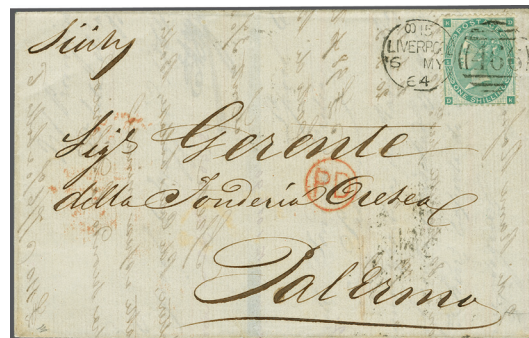 Sicily
LIVERPO
MY
64
ONE SHILLING
466
Sigr Gerente
della Fonderia Oretea
PD
Palermo